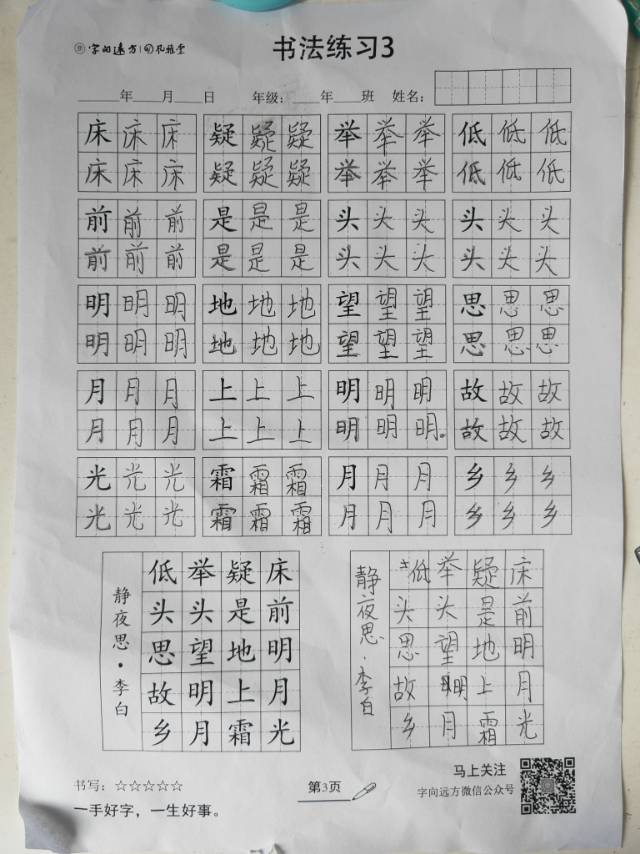 字向远方
书法练习3
年 月 日 年级: 年 班 姓名:
床床床 疑疑疑 举举举 低低低
床床床 疑疑疑 举举举 低低低
前前前 是是是 头头头 头头头
前前前 是是是 头头头 头头头
明明明 地地地 望望望 思思思
明明明 地地地 望望望 思思思
月月月 上上上 明明明 故故故
月月月 上上上 明明明 故故故
光光光 霜霜霜 月月月 乡乡乡
光光光 霜霜霜 月月月 乡乡乡
床前明月光
疑是地上霜
举头望明月
低头思故乡
静夜思·李白
床前明月光
疑是地上霜
举头望明月
低头思故乡
静夜思·李白
书写: ☆☆☆☆☆
一手好字，一生好事。
第3页
马上关注
字向远方微信公众号